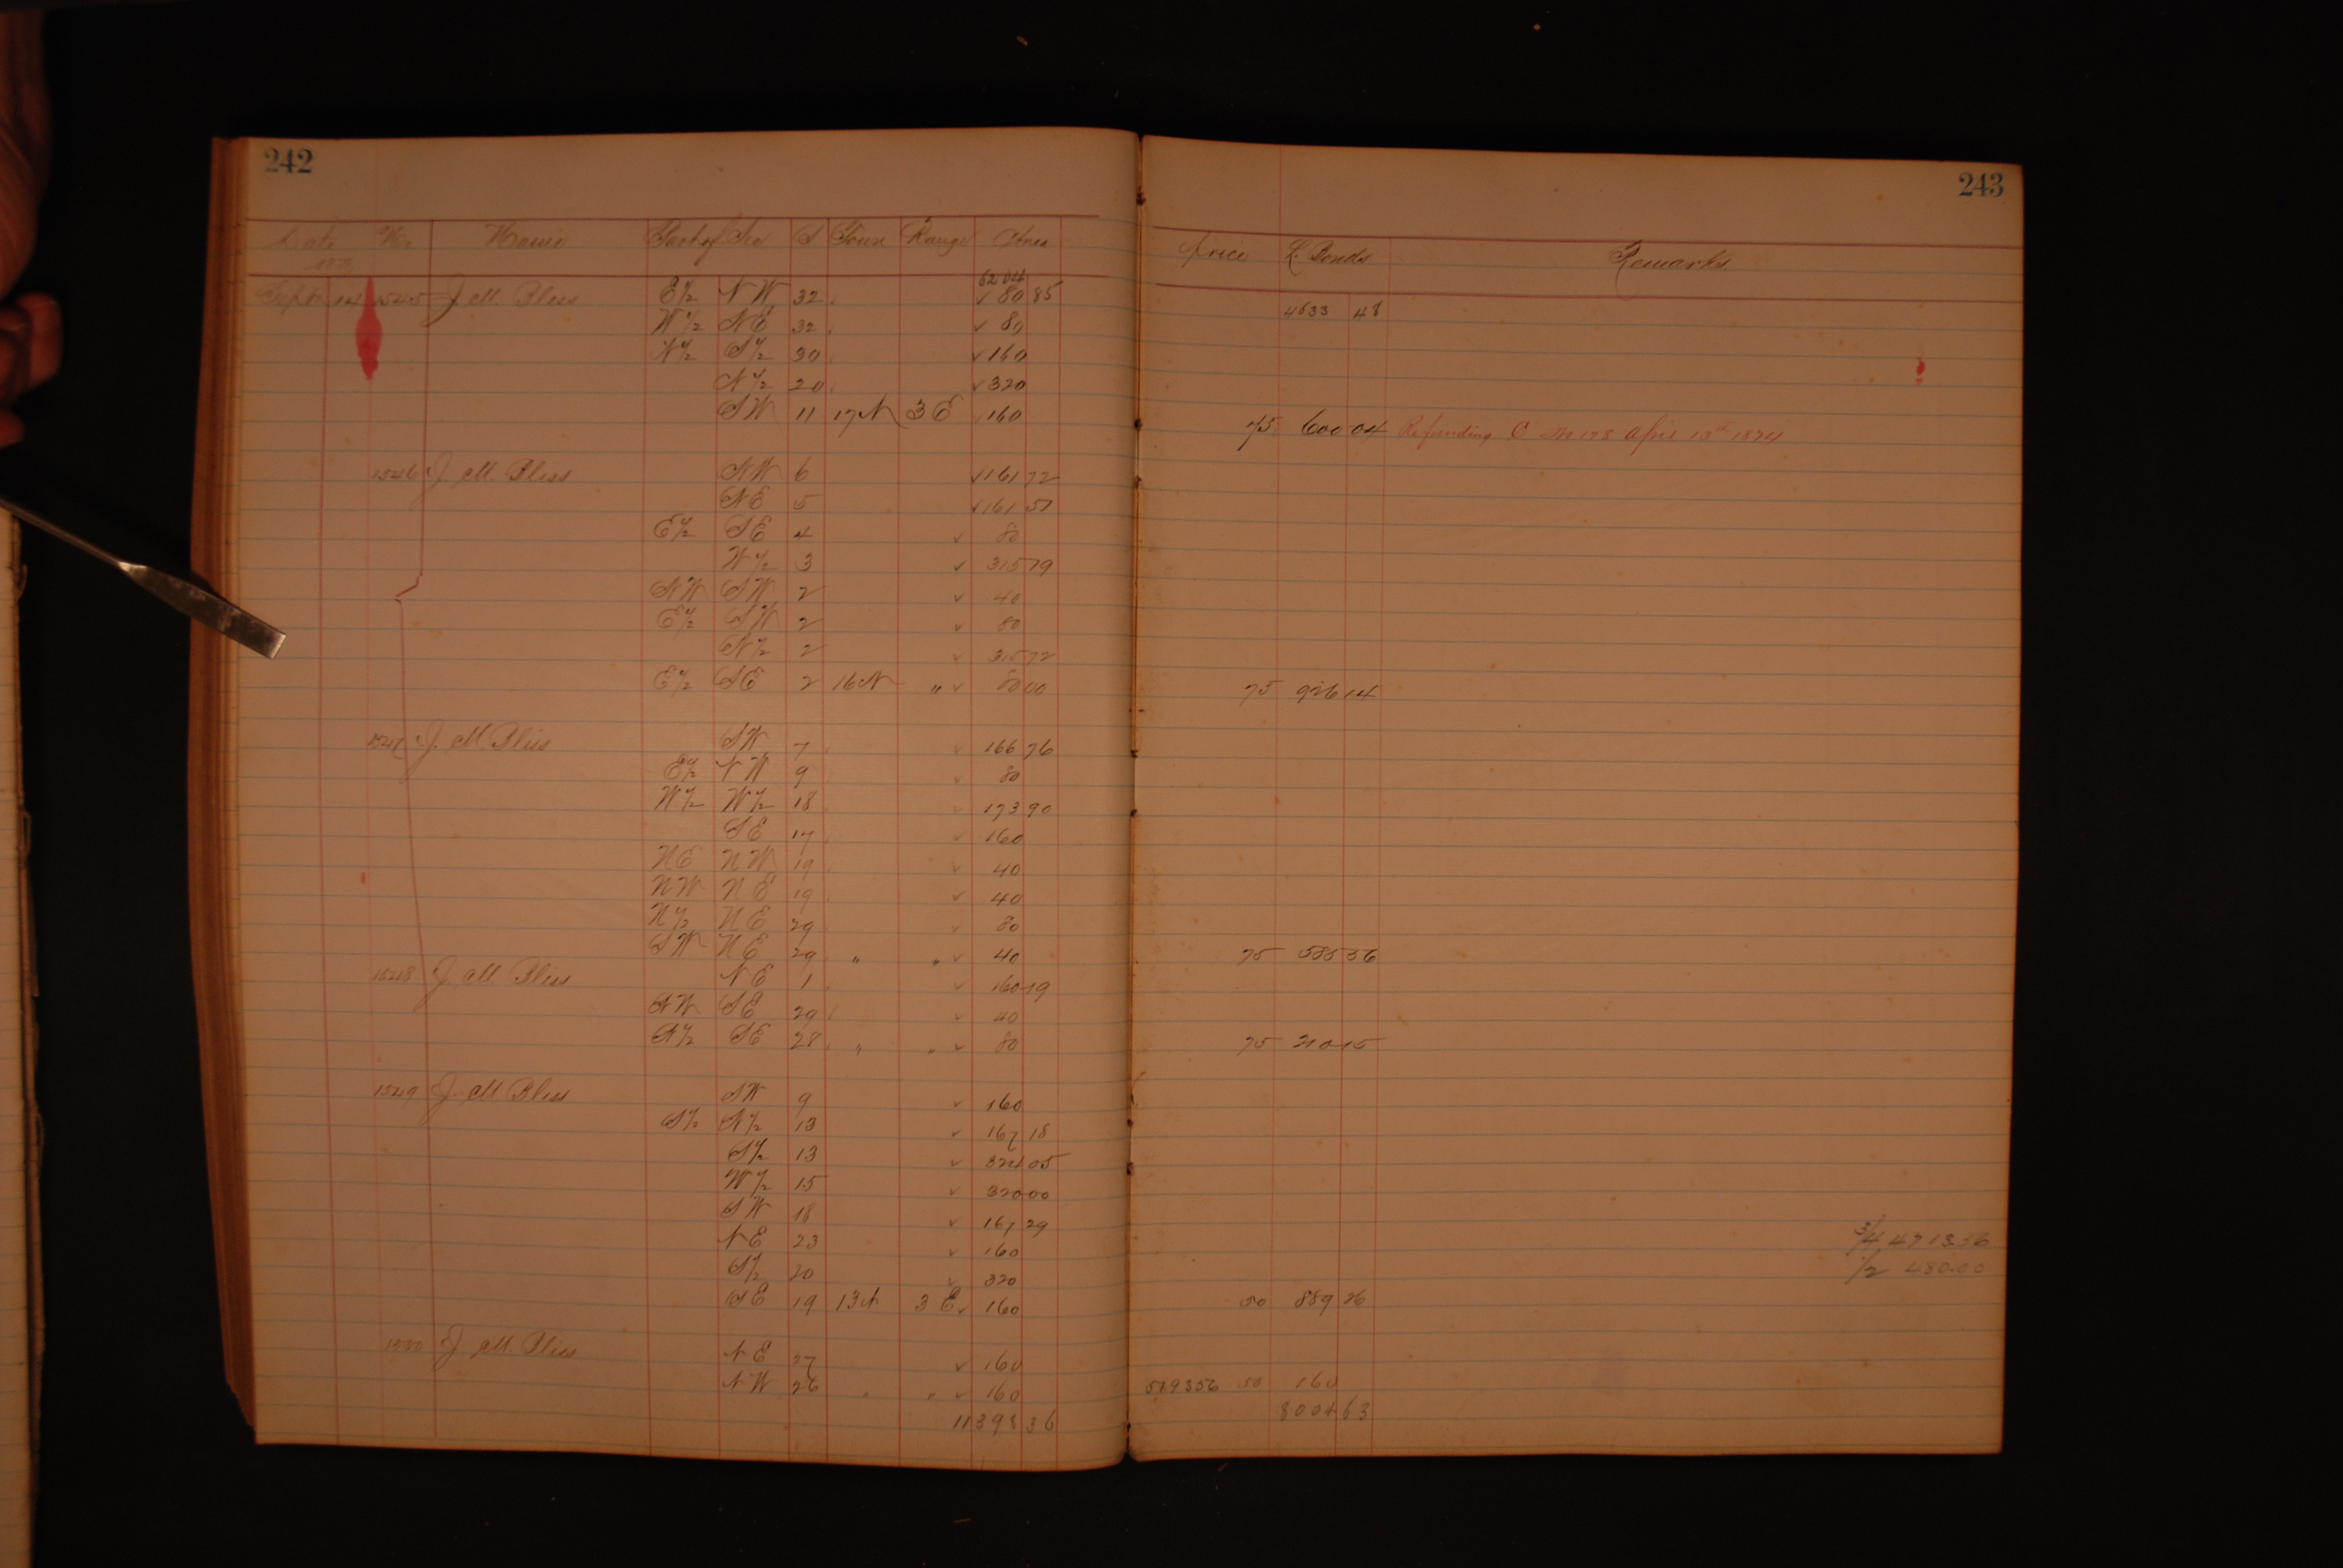 242
243
Date No. Name Part of Sec S Town Range Acres
Price L. Bonds Remarks
1873
6204
Sept 12 1545 J. M. Bliss E½ NW 32 ✓ 80 85 4633 48
W½ NE 32 ✓ 80
N½ S½ 30 ✓ 160
N½ 20 ✓ 320
SW 11 17 N 3 E ✓ 160 75 600 04 Refunding C No 178 April 13th 1874
1546 J. M. Bliss NW 6 ✓ 161 72
NE 5 ✓ 161 57
E½ SE 4 ✓ 80
W½ 3 ✓ 315 79
NW SW 2 ✓ 40
E½ SW 2 ✓ 80
N½ 2 ✓ 315 72
E½ SE 2 16 N " ✓ 80 00 75 926 14
1547 J. M. Bliss SW 7 ✓ 166 76
E½ NW 9 ✓ 80
W½ W½ 18 ✓ 173 90
SE 17 ✓ 160
NE NW 19 ✓ 40
NW NE 19 ✓ 40
N½ NE 29 ✓ 80
SW NE 29 " " ✓ 40 75 585 56
1548 J. M. Bliss NE 1 ✓ 160 19
NW SE 29 ✓ 40
N½ SE 28 " " ✓ 80 75 210 15
1549 J. M. Bliss SW 9 ✓ 160
S½ N½ 13 ✓ 167 18
S½ 13 ✓ 324 05
W½ 15 ✓ 320 00
SW 18 ✓ 167 29
NE 23 ✓ 160
¾ 4713.56
S½ 20 ✓ 320
½ 480.00
SE 19 13 N 3 E ✓ 160 50 889 26
1550 J. M. Bliss NE 27 ✓ 160
NW 26 " " ✓ 160 519356 50 160
11398 36 8004 63